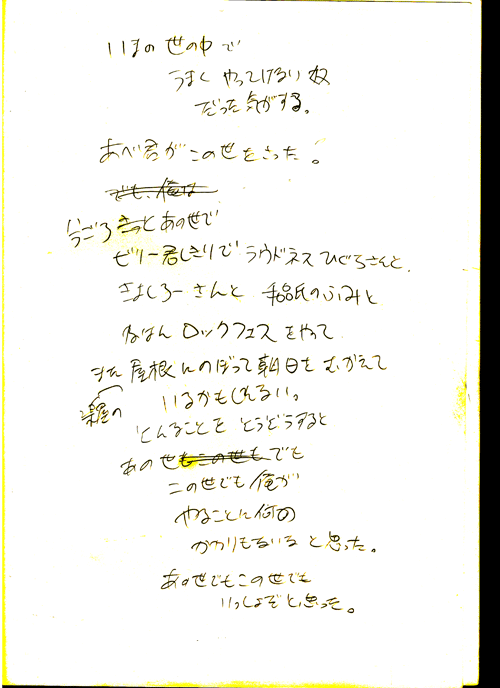 いまの世の中で
うまくやってけない奴
だった気がする。
あべ君がこの世をさった。
でも、俺は
今ごろきっとあの世で
ゼリー君しきりでラウドネスひぐちさんと、
きよしろーさんと 忌品氏のふみと
なはんロックフェスをやって
また屋根にのぼって朝日をむかえて
楽屋の
いるかもしれない。
そんなことをとうどうすると
あの世もこの世もでも
この世でも俺が
やることに何の
かわりもないなと思った。
あの世でもこの世でも
いっしょだぞと思った。